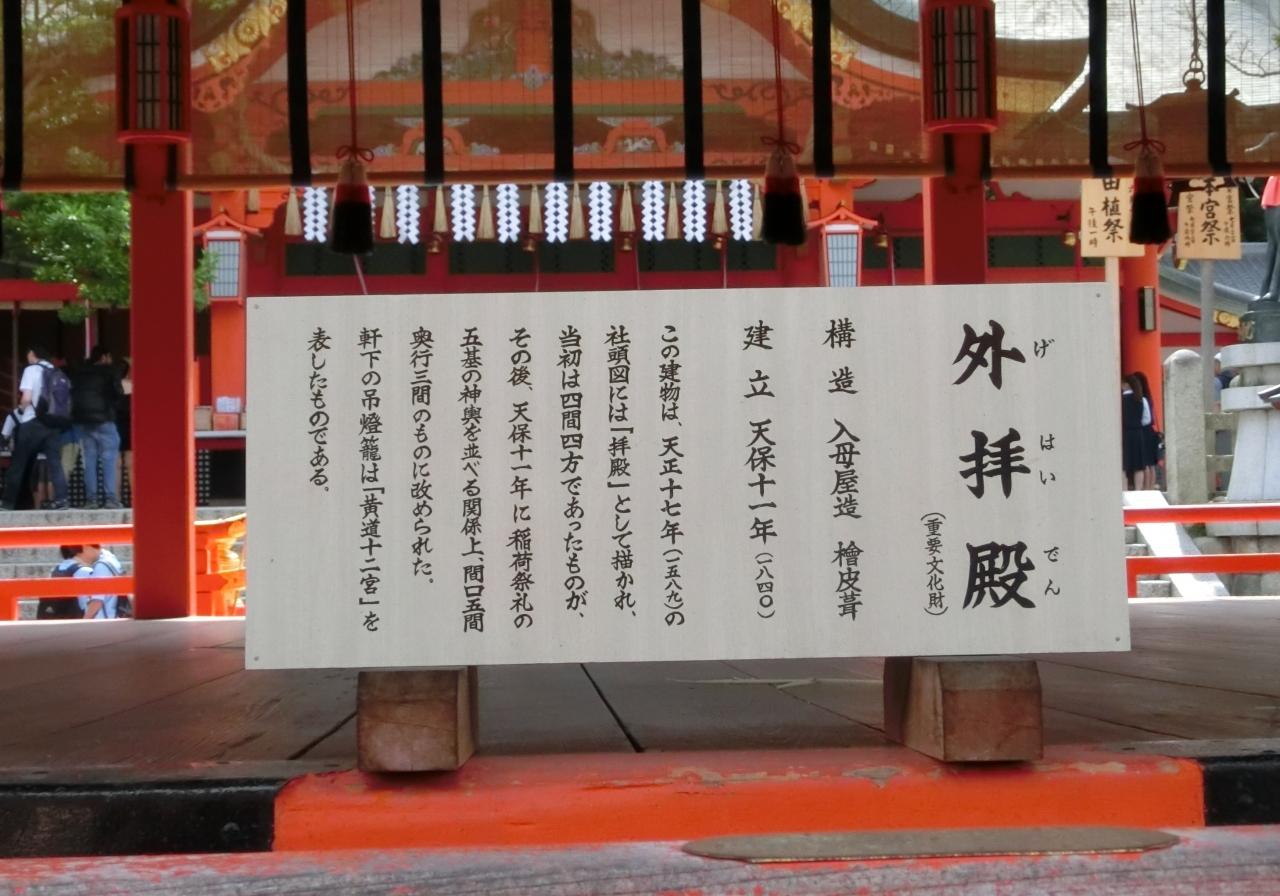 外拝殿
げ はい でん
(重要文化財)
構造 入母屋造 檜皮葺
建立 天保十一年(一八四〇)
この建物は、天正十七年(一五八九)の
社頭図には「拝殿」として描かれ、
当初は四間四方であったものが、
その後、天保十一年に稲荷祭礼の
五基の神輿を並べる関係上、間口五間
奥行三間のものに改められた。
軒下の吊燈籠は「黄道十二宮」を
表したものである。
本宮祭
田植祭
午後一時